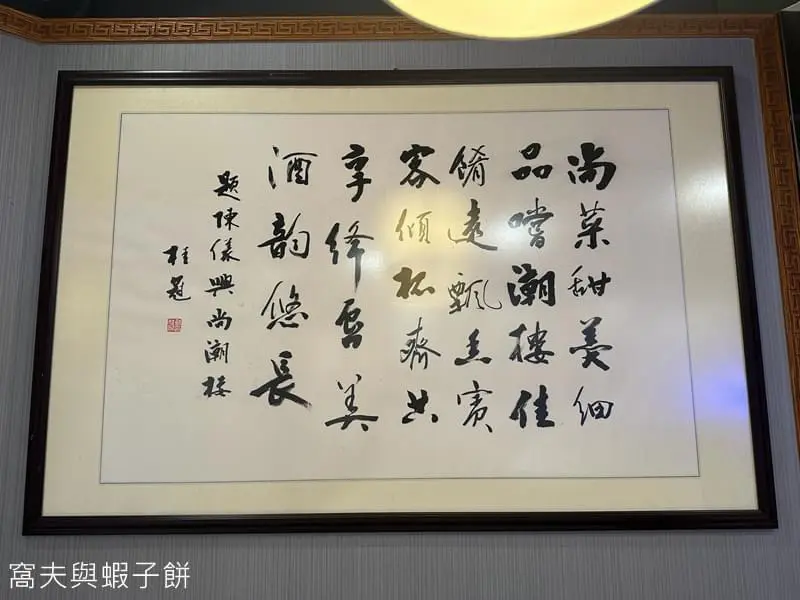 尚菜甜羹細
品嚐潮樓佳
餚遠飄玉賓
客傾杯齊共
享絳雪美
酒韵悠長
題陳儀興尚潮樓
桂冠
窩夫與蝦子餅